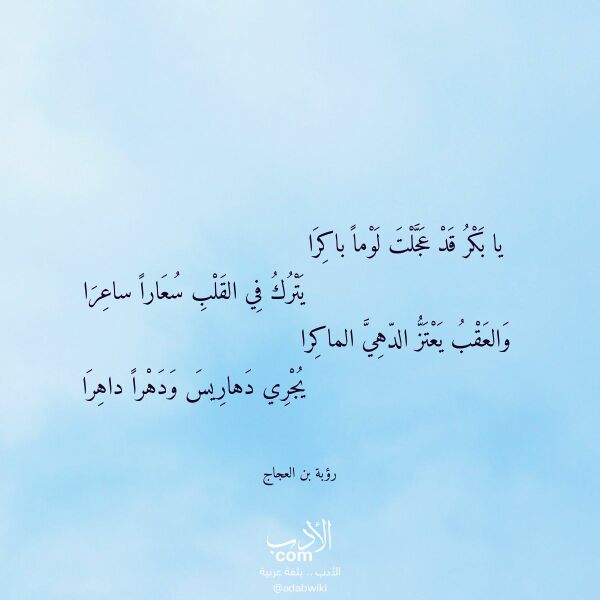 يا بَكْرُ قَدْ عَجَّلْتَ لَوْماً باكِرَا
يَتْرُكُ فِي القَلْبِ سُعَاراً ساعِرَا
وَالعَقْبُ يَعْتَزُّ الدّهِيَّ الماكِرا
يُجْرِي دَهارِيسَ وَدَهْراً داهِرَا
رؤبة بن العجاج
الأدب
com
الأدب .. بلغة عربية
@adabwiki